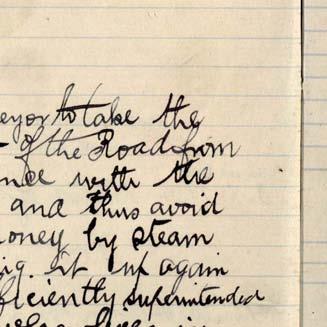 eyor to take the
of the Road from
nce with the
and thus avoid
oney by steam
ig. it up again
ficiently superintended